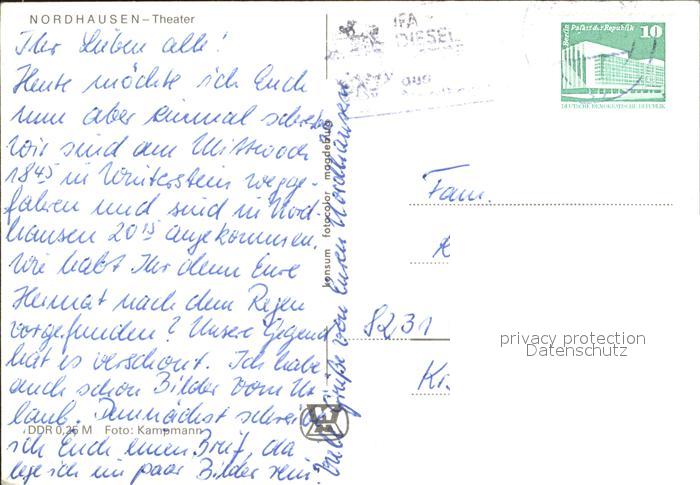 NORDHAUSEN – Theater
Ihr Lieben alle!
Heute möchte ich Euch
nun aber einmal schreiben
Wir sind am Mittwoch
18⁴⁵ in Winterstein wegge-
fahren und sind in Nord-
hausen 20¹⁵ angekommen.
Wie habt Ihr denn Eure
Heimat nach dem Regen
vorgefunden? Unsere Gegend
hat es verschont. Ich habe
auch schon Bilder vom Ur-
laub. Demnächst schreibe
DDR 0,25 M Foto: Kampmann
ich Euch einen Brief, da
lege ich ein paar Bilder rein.
Viele Grüße von Euren Nordhausen
konsum fotocolor magdeburg
IFA
DIESEL
aus
Berlin Palast der Republik 10
DEUTSCHE DEMOKRATISCHE REPUBLIK
Fam.
K
8231
privacy protection
Datenschutz